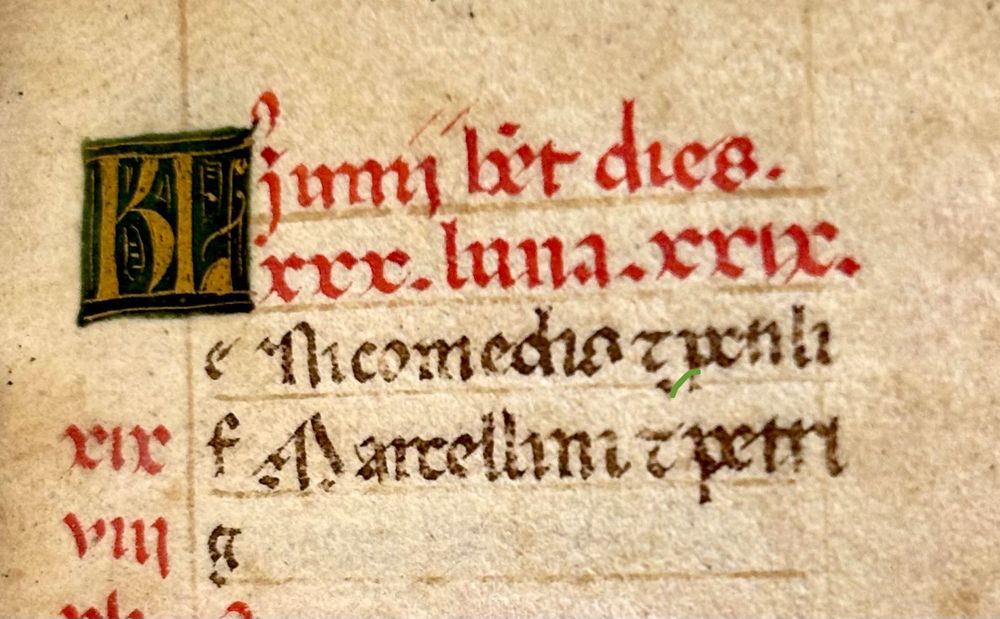 KL Junij hēt dies.
xxx. luna. xxix.
e Nicomedis ⁊
xix f Marcellini ⁊ petri
viij g